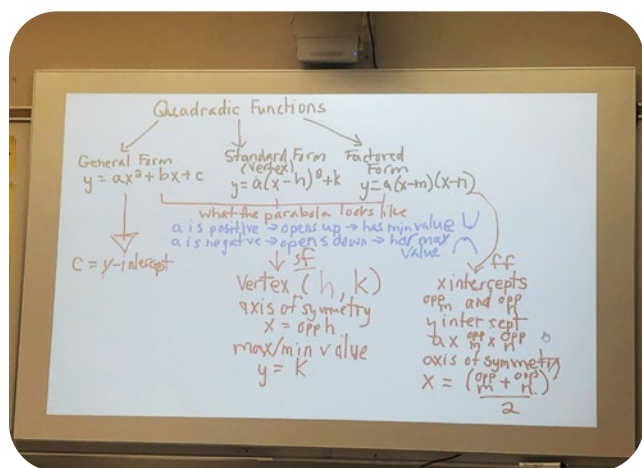 Quadradic Functions
General Form
y = ax²+bx+c
Standard Form
(vertex)
y = a(x-h)²+k
Factored
Form
y = a(x-m)(x-n)
what the parabola looks like
a is positive → opens up → has min value ∪
a is negative → opens down → has max
value ∩
C = y-intersept
sf
Vertex (h, k)
axis of symmetry
x = opp h
max/min value
y = k
ff
x intercepts
opp m and opp n
y intersept
a x opp m x opp n
axis of symmetry
X = (opp m + opp n)
2